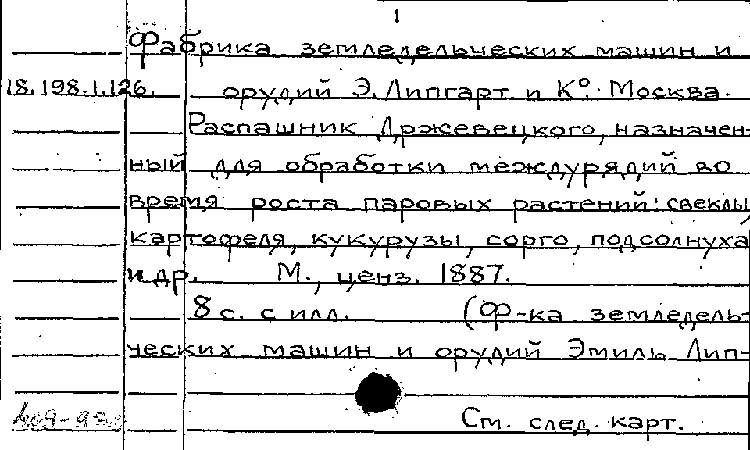 1
Фабрика земледельческих машин и
18.198.1.126. орудий Э. Липгарт и Ко. Москва.
Распашник Држевецкого, назначен-
ный для обработки междурядий во
время роста паровых растений: свеклы,
картофеля, кукурузы, сорго, подсолнуха
и др. М., ценз. 1887.
8 с. с илл. (Ф-ка земледель-
ческих машин и орудий Эмиль Лип-
См. след. карт.